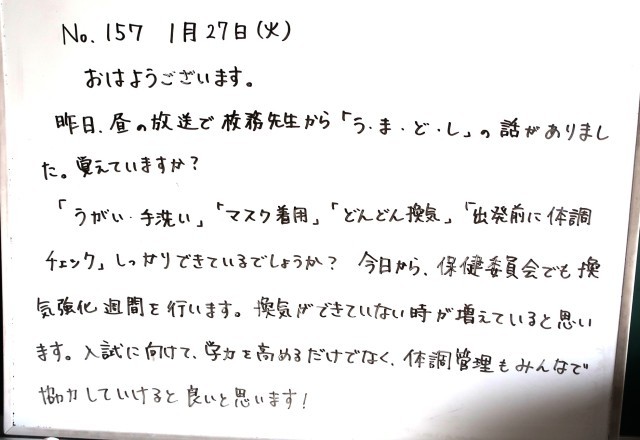 No. 157 1月27日(火)
おはようございます。
昨日、昼の放送で教務先生から「う・ま・ど・し」の話がありまし
た。覚えていますか?
「うがい・手洗い」「マスク着用」「どんどん換気」「出発前に体調
チェック」しっかりできているでしょうか? 今日から、保健委員会でも換
気強化週間を行います。換気ができていない時が増えていると思い
ます。入試に向けて、学力を高めるだけでなく、体調管理もみんなで
協力していけると良いと思います!